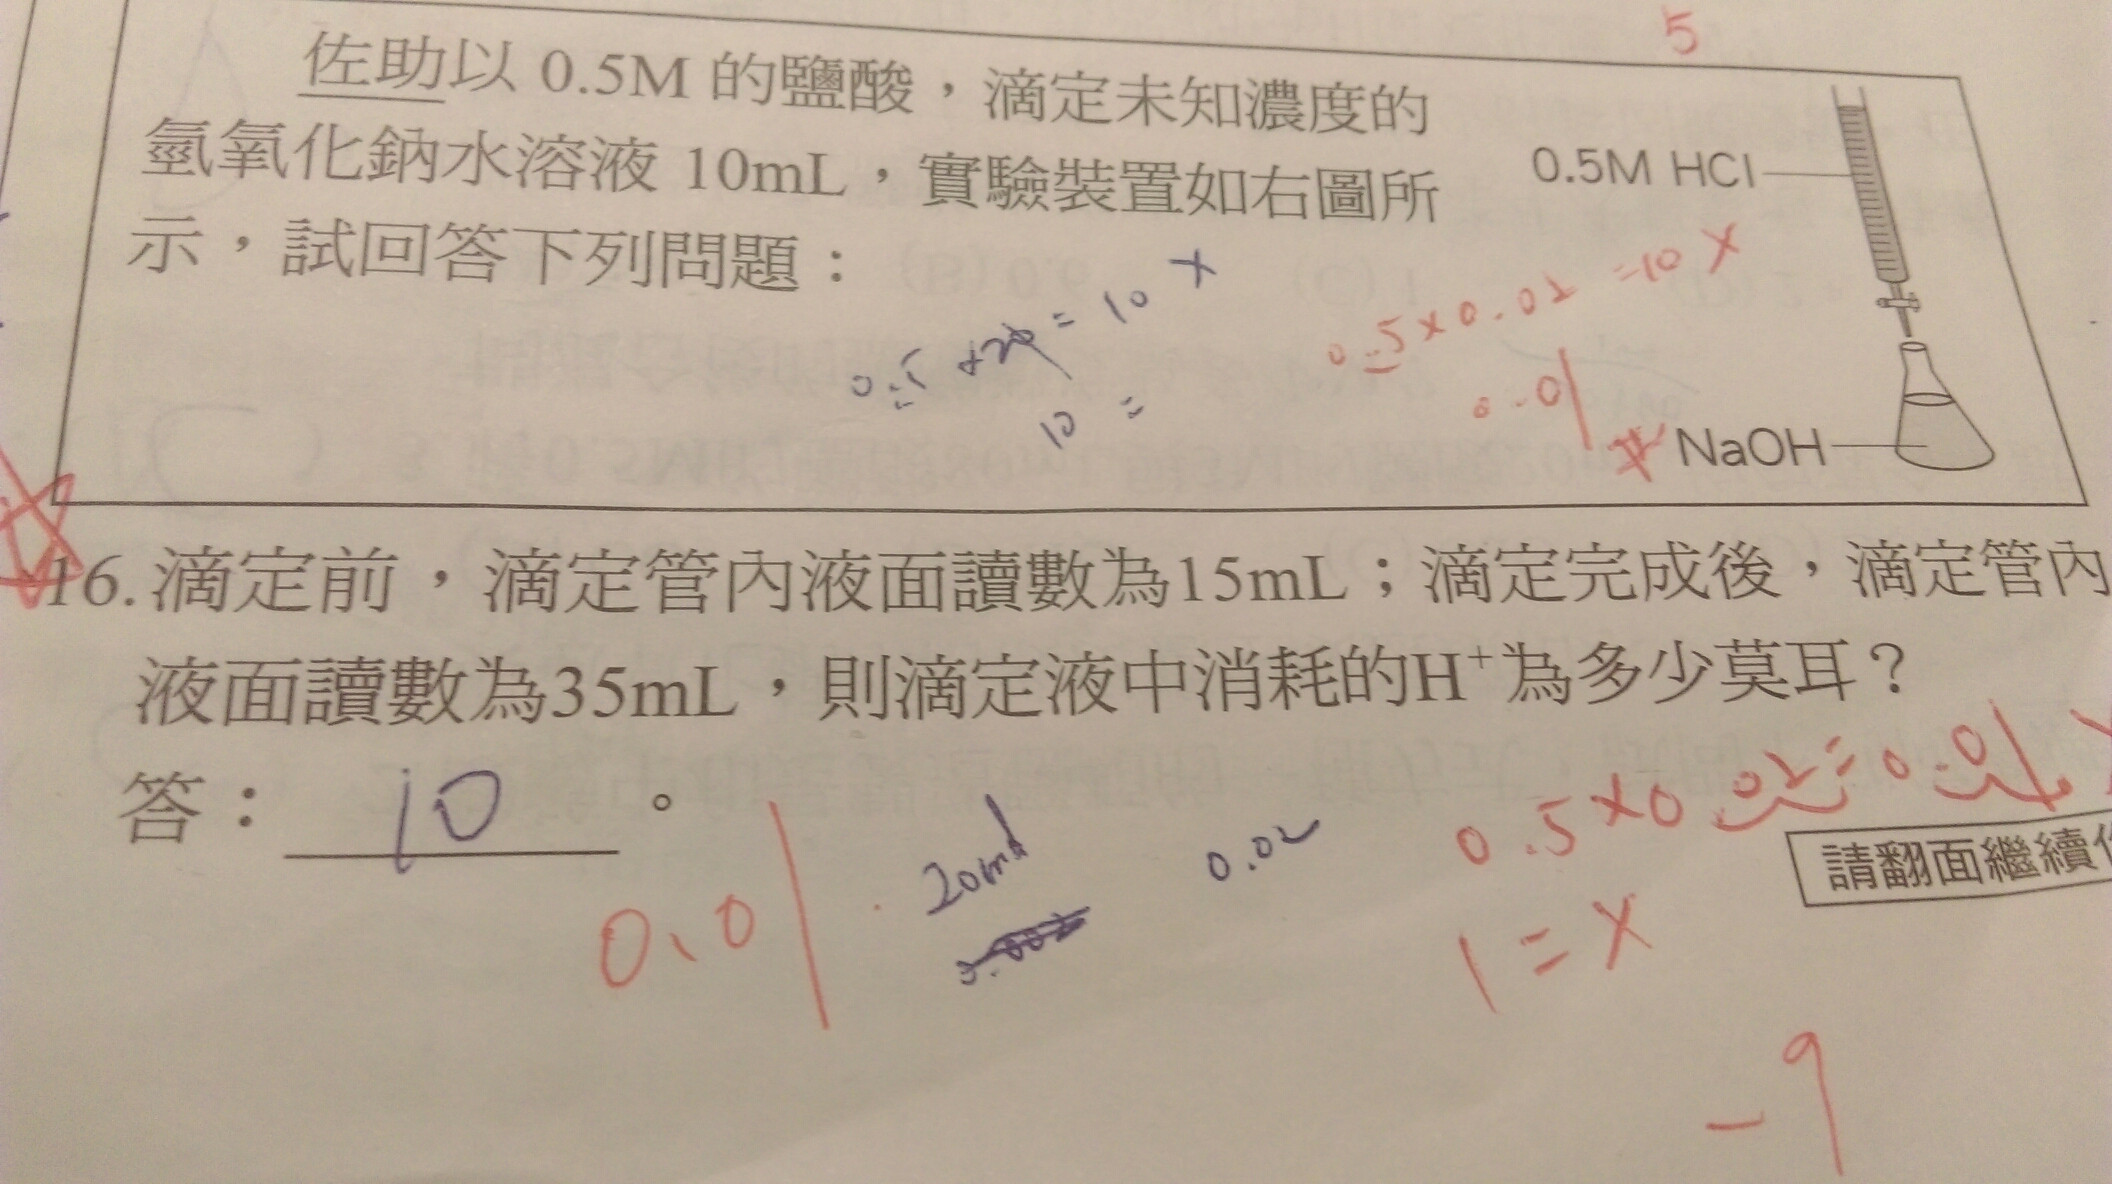 5
佐助以 0.5M 的鹽酸，滴定未知濃度的
氫氧化鈉水溶液 10mL，實驗裝置如右圖所
示，試回答下列問題：
0.5M HCl
NaOH
0.5×20=10 X
10 =
0.5×0.02=10 X
0.01
16.滴定前，滴定管內液面讀數為15mL；滴定完成後，滴定管內
液面讀數為35mL，則滴定液中消耗的H⁺為多少莫耳？
答： 10 。
0.01
20ml
0.02
0.5×0.02=0.01 X
1=X
請翻面繼續
-9